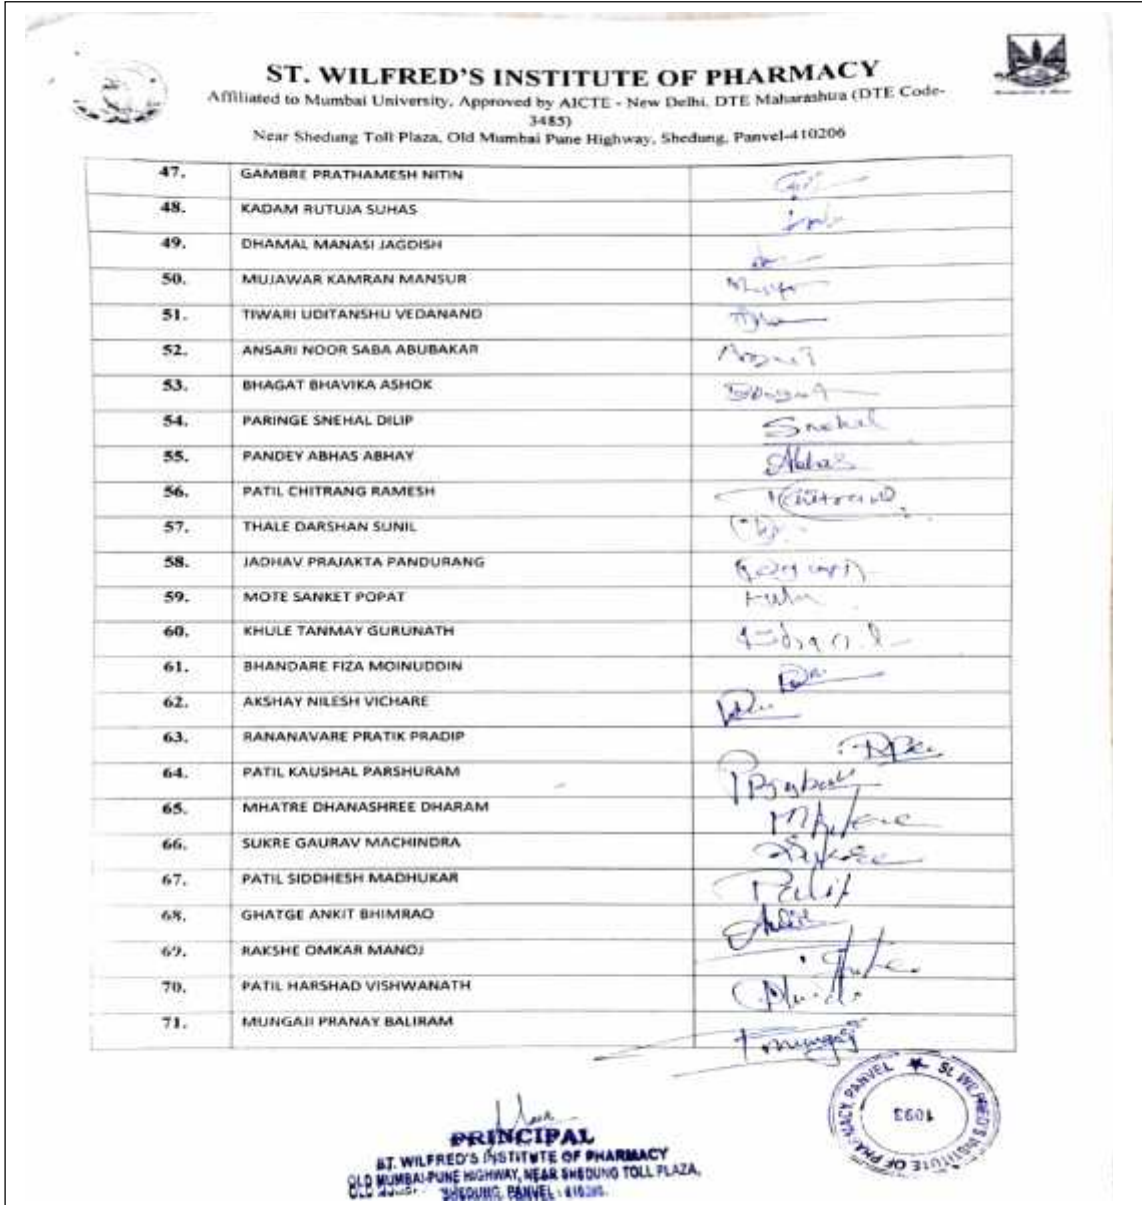 ST. WILFRED'S INSTITUTE OF PHARMACY
Affiliated to Mumbai University, Approved by AICTE - New Delhi, DTE Maharashtra (DTE Code-
3485)
Near Shedung Toll Plaza, Old Mumbai Pune Highway, Shedung, Panvel-410206
47. GAMBRE PRATHAMESH NITIN
48. KADAM RUTUJA SUHAS
49. DHAMAL MANASI JAGDISH
50. MUJAWAR KAMRAN MANSUR
51. TIWARI UDITANSHU VEDANAND
52. ANSARI NOOR SABA ABUBAKAR
53. BHAGAT BHAVIKA ASHOK
54. PARINGE SNEHAL DILIP Snehal
55. PANDEY ABHAS ABHAY Abhas
56. PATIL CHITRANG RAMESH Chitrang
57. THALE DARSHAN SUNIL
58. JADHAV PRAJAKTA PANDURANG
59. MOTE SANKET POPAT
60. KHULE TANMAY GURUNATH
61. BHANDARE FIZA MOINUDDIN
62. AKSHAY NILESH VICHARE
63. RANANAVARE PRATIK PRADIP
64. PATIL KAUSHAL PARSHURAM
65. MHATRE DHANASHREE DHARAM
66. SUKRE GAURAV MACHINDRA
67. PATIL SIDDHESH MADHUKAR Patil
68. GHATGE ANKIT BHIMRAO
69. RAKSHE OMKAR MANOJ
70. PATIL HARSHAD VISHWANATH
71. MUNGAJI PRANAY BALIRAM
PRINCIPAL
ST. WILFRED'S INSTITUTE OF PHARMACY
OLD MUMBAI-PUNE HIGHWAY, NEAR SHEDUNG TOLL PLAZA,
SHEDUNG, PANVEL - 410206.
ST. WILFRED'S INSTITUTE OF PHARMACY, PANVEL
1093